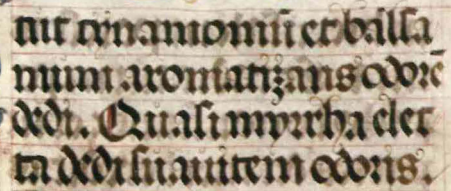 cut cynamomū et balsa
mum aromatizans odorē
dedi. Quasi myrrha elec
ta dedi suauitem odoris.